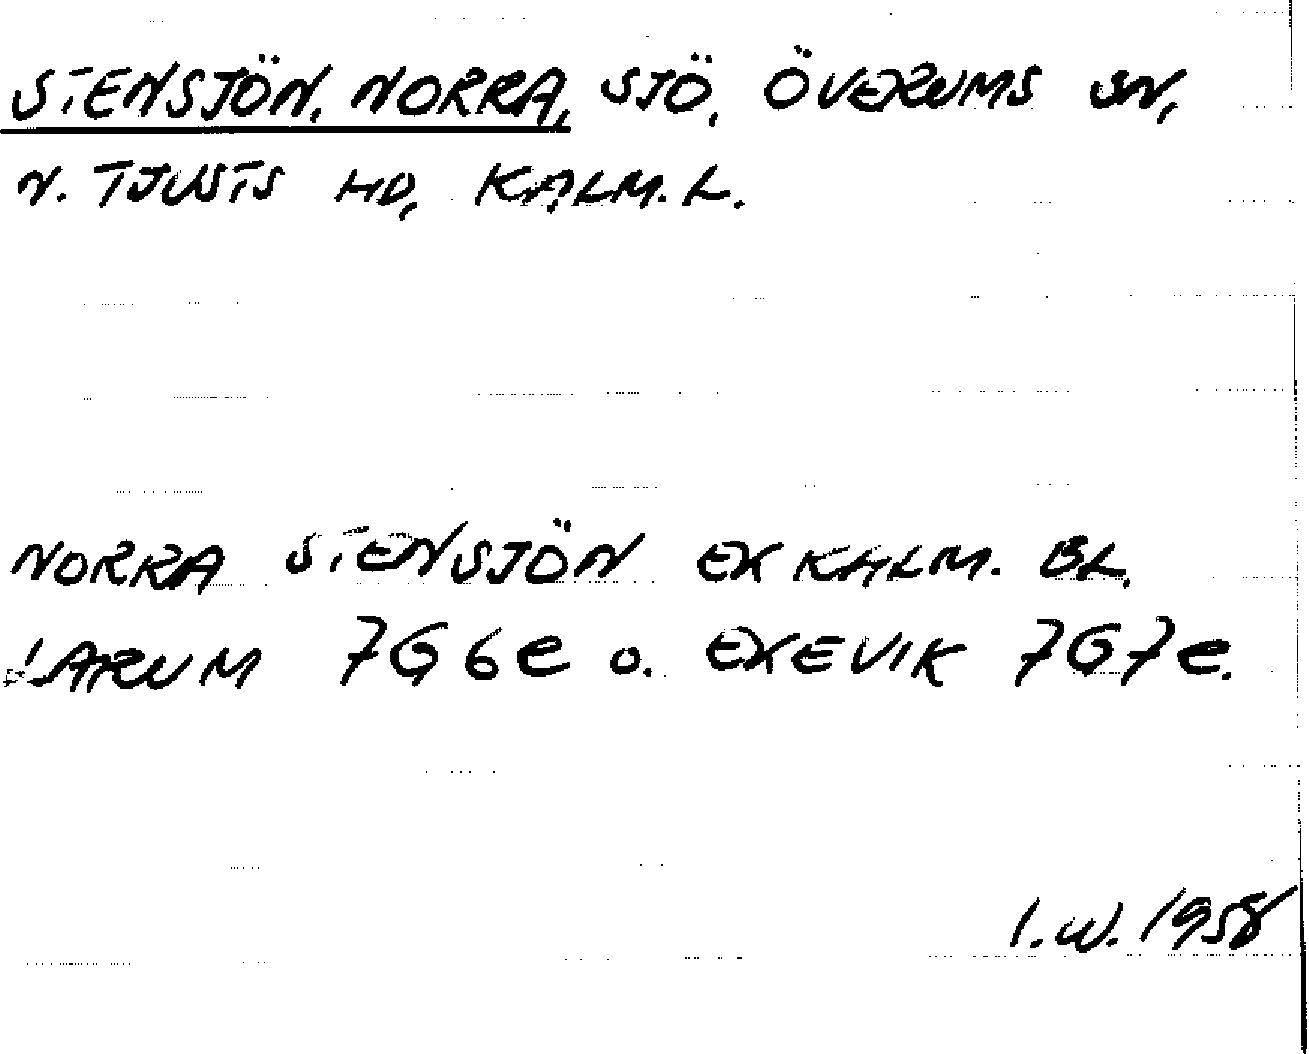 STENSJÖN, NORRA, SJÖ, ÖVERUMS SN,
N. TJUSTS HD, KALM. L.
NORRA STENSJÖN EK KALM. BL.
7G6e o. EKEVIK 7G7e.
I.W. 1958